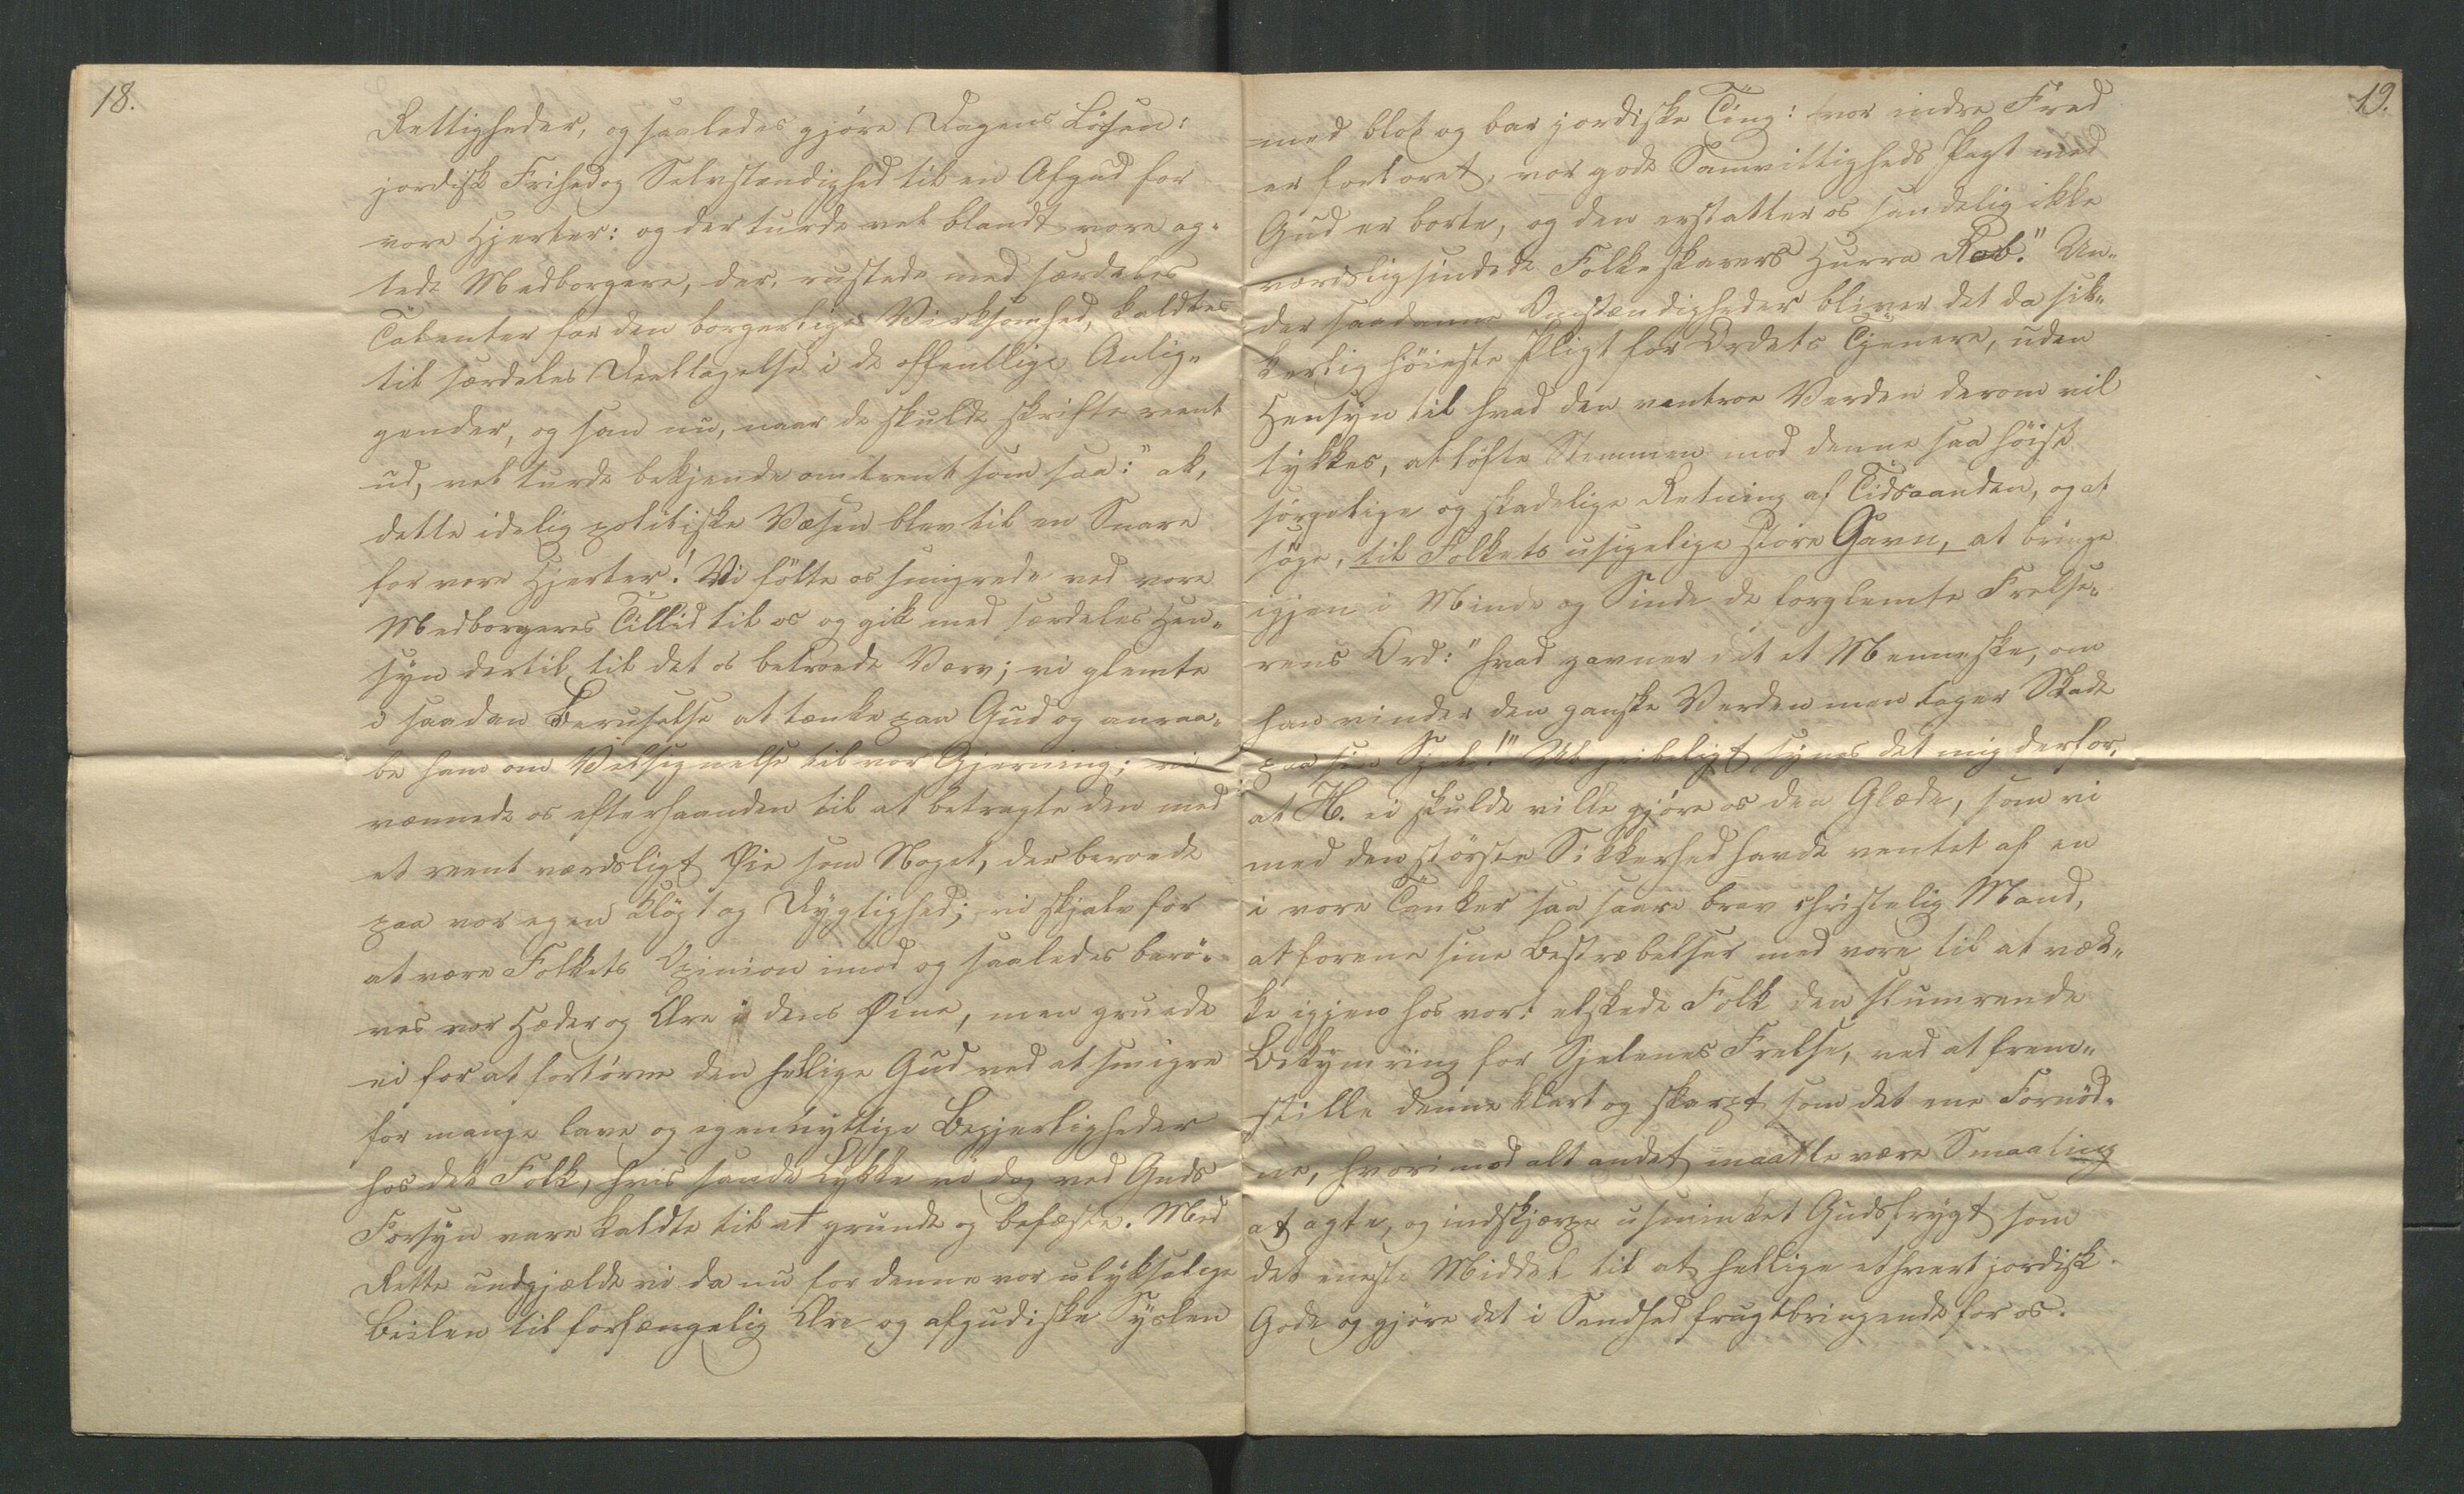 18.
Rettigheder, og saaledes gjöre Dagens Lösen:
jordisk Frihed og Selvstændighed til en Afgud for
vore Hjerter: og der turde vel blandt vore ag-
tede Medborgere, der, rustede med særdeles
Talenter for den borgerlige Virksomhed, kaldtes
til særdeles Deeltagelse i de offentlige Anlig-
gender, og som nu, naar de skulde skrifte reent
ud, vel turde bekjende omtrent som saa: "ak,
dette idelig politiske Væsen blev til en Snare
for vore Hjerter! Vi fölte os smigrede ved vore
Medborgeres Tillid til os og gik med særdeles Hen-
syn dertil til det os betroede Værv; vi glemte
i saadan Beruselse at tænke paa Gud og anraa-
be ham om Velsignelse til vor Gjerning; vi
vænnede os efterhaanden til at betragte den med
et reent værdsligt Øie som Noget, der beroede
paa vor egen Klögt og Dygtighed; vi skjalv for
at være Folkets Opinion imod og saaledes berö-
ves vor Hæder og Ære i dens Øine, men gruede
ei for at fortörne den hellige Gud ved at smigre
for mange lave og egennyttige Begjerligheder
hos det Folk, hvis sande Lykke vi dog ved Guds
Forsyn vare kaldte til at grunde og befæste. Med
Rette undgjælde vi da nu for denne vor ulyksalige
Beilen til forfængelig Ære og afgudiske Syslen
19.
med blot og bar jordiske Ting: vor indre Fred
er forloret, vor gode Samvittigheds Pagt med
Gud er borte, og den erstatter os sandelig ikke
værdsligsindede Folkeskarers Hurra Rob." Un-
der saadanne Omstændigheder bliver det da sik-
kerlig höieste Pligt for Ordets Tjenere, uden
Hensyn til hvad den vantroe Verden derom vil
tykkes, at löfte Stemmen mod denne saa höist
sörgelige og skadelige Retning af Tidsaanden, og at
söge, til Folkets usigelige store Gavn, at bringe
igjen i Minde og Sinde de forglemte Frelse-
rens Ord: "hvad gavner det et Menneske, om
han vinder den ganske Verden men tager Skade
paa sin Sjel!" Ubegribeligt synes det mig derfor,
at H. ei skulde ville gjöre os den Glæde, som vi
med den störste Sikkerhed havde ventet af en
i vore Tanker saa saare brav christelig Mand,
at forene sine Bestræbelser med vore til at væk-
ke igjen hos vort elskede Folk den slumrende
Bekymring for Sjelenes Frelse, ved at frem-
stille denne klart og skarpt som det ene Fornöd-
ne, hvorimod alt andet maatte være Smaating
at agte, og indskjærpe usminket Gudsfrygt som
det eneste Middel til at hellige ethvert jordisk
Gode og gjöre det i Sandhed frugtbringende for os.